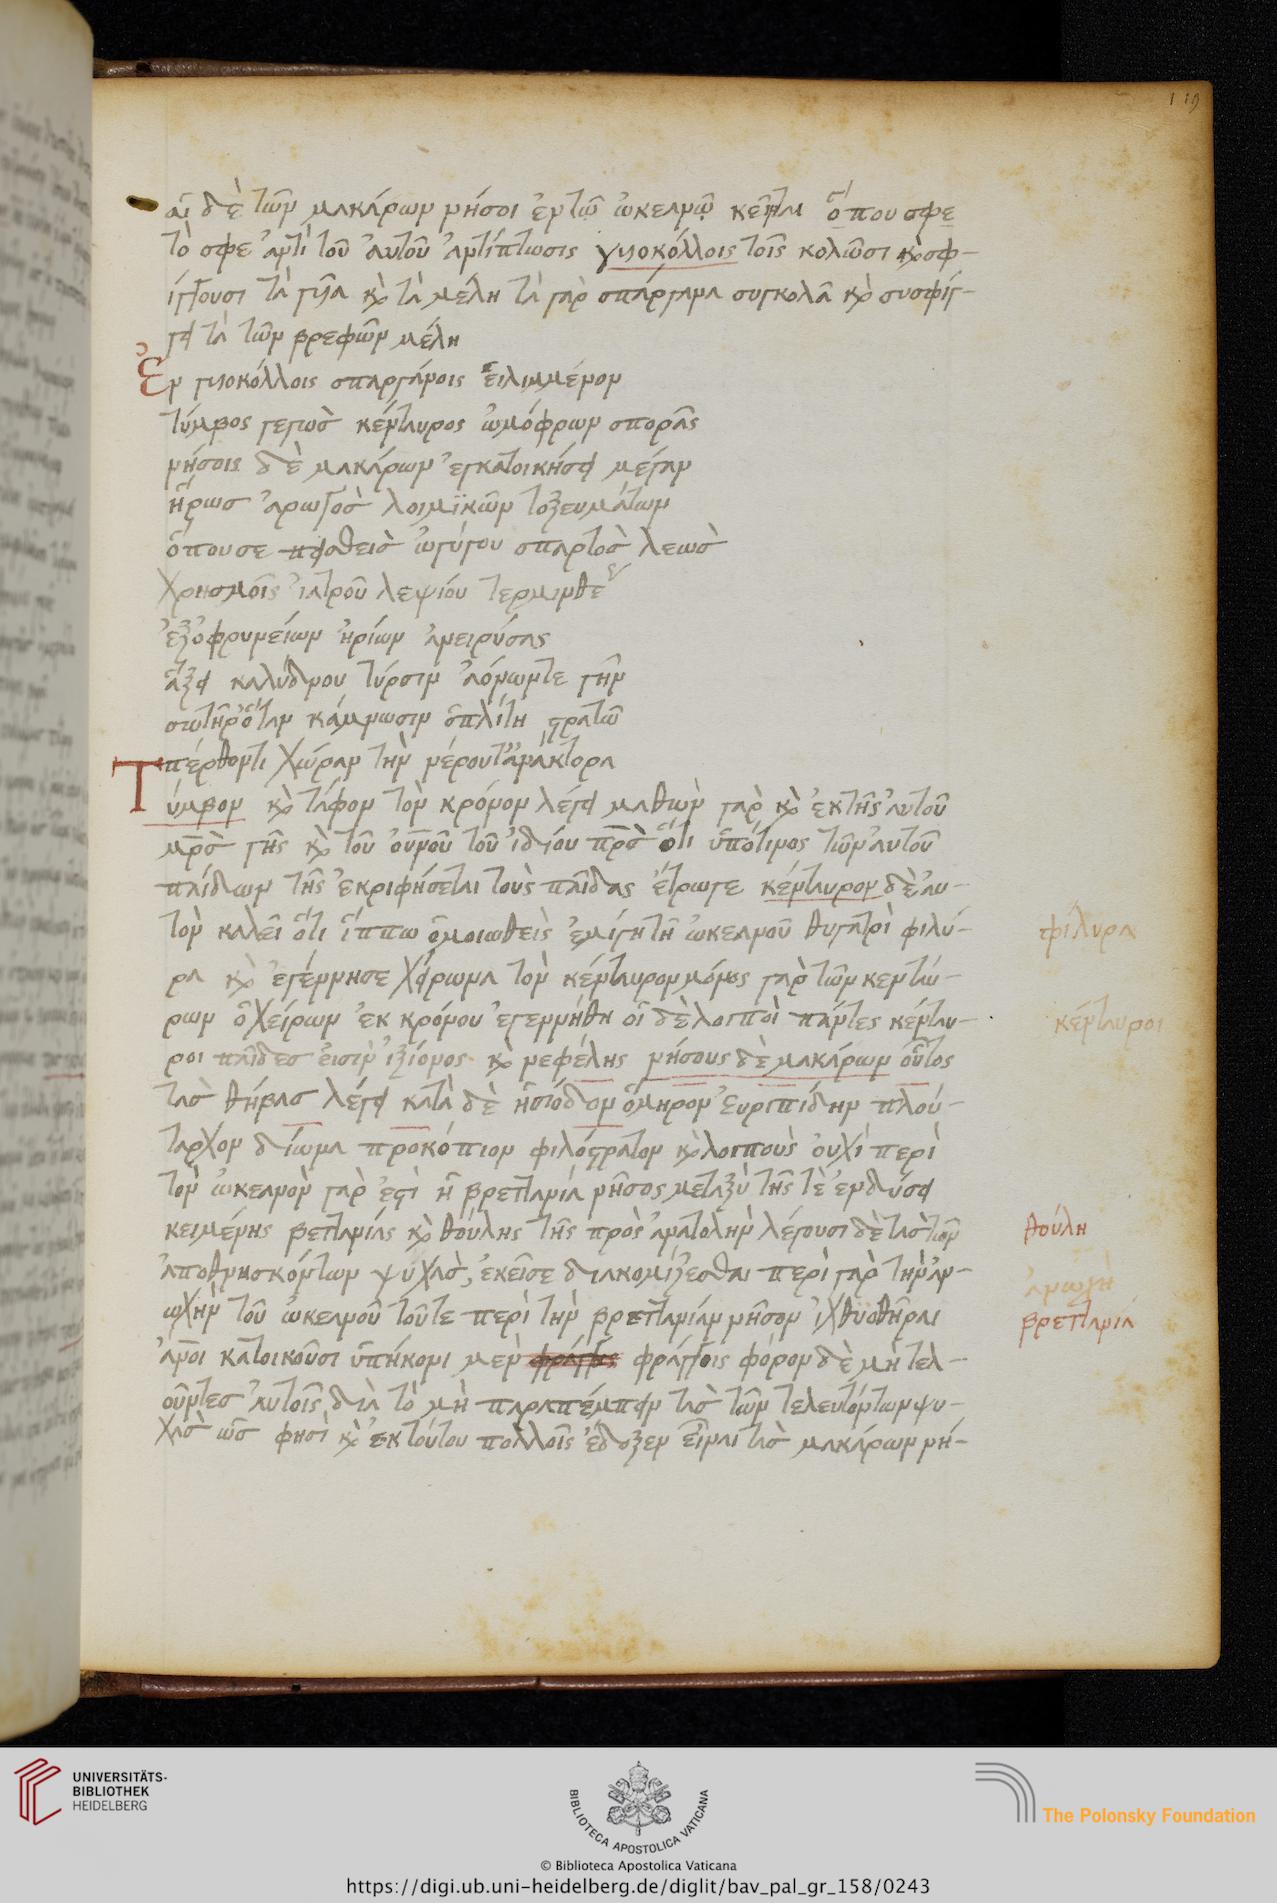 119
αἱ δὲ τῶν μακάρων νήσοι ἐν τῶ ὠκεανῶ κεῖνται ὅπου σφε
τὸ σφε ἀντὶ τοῦ αὐτοῦ ἀντίπτωσις γυιοκόλλοις τοῖς κολῶσι καὶ σφ-
ίγγουσι τὰ γυῖα καὶ τὰ μέλη τὰ γὰρ σπάργανα συγκολᾶ καὶ συσφίγ-
γει τὰ τῶν βρεφῶν μέλη
Ἐν γυιοκόλλοις σπαργάνοις εἱλιμμένον
τύμβος γεγὼσ κένταυρος ὠμόφρων σπορᾶς
νήσοις δὲ μακάρων ἐγκατοικήσει μέγαν
ἥρωσ ἀρωγὸσ λοιμϊκῶν τοξευμάτων
ὅπου σε πεισθεὶσ ὠγύγου σπαρτὸσ λεὼσ
χρησμοῖς ἰατροῦ λεψίου τερμινθέ
ἐξ ὀφρυνείων ἠρίων ἀνειρύσας
ἄξει καλύδνου τύρσιν ἀόνων τε γῆν
σωτῆρ' ὅταν κάμνωσιν ὁπλίτη στρατῶ
πέρθοντι χώραν τὴν νέρου τ' ἀνάκτορα
Τύμβον καὶ τάφον τὸν κρόνον λέγει μαθὼν γὰρ καὶ ἐκ τῆς αὐτοῦ
μρσ γῆς καὶ τοῦ οὐνοῦ τοῦ ἰδίου πρσ ὅτι ὑπό τινος τῶν αὐτοῦ
παίδων τῆς ἐκριφήσεται τοὺς παῖδας ἔτρωγε κένταυρον δὲ αὐ-
τὸν καλεῖ ὅτι ἵππω ὁμοιωθεὶς ἐμίγη τῆ ὠκεανοῦ θυγατρὶ φιλύ-
ρα καὶ ἐγέννησε χείρωνα τὸν κένταυρον μόνος γὰρ τῶν κενταύ-
ρων ὁ χείρων ἐκ κρόνου ἐγεννήθη οἱ δὲ λοιποὶ πάντες κένταυ-
ροι παῖδεσ εἰσὶν ἰξίονος καὶ νεφέλης νήσους δὲ μακάρων οὗτος
τὰσ θήβασ λέγει κατὰ δὲ ἡσιόδον ὅμηρον εὐριπίδην πλού-
ταρχον δίωνα προκόπιον φιλόστρατον καὶ λοιποὺς οὐχὶ περὶ
τὸν ὠκεανὸν γάρ ἐστι ἡ βρετανία νῆσος μεταξὺ τῆς τὲ ἐν δύσει
κειμένης βετανίας καὶ θούλης τῆς πρὸς ἀνατολὴν λέγουσι δὲ τὰσ τῶν
ἀποθνησκόντων ψυχὰσ, ἐκεῖσε διακομίζεσθαι περὶ γὰρ τὴν ἀν-
ωχὴν τοῦ ὠκεανοῦ τοῦ τε περὶ τὴν βρετανίαν νῆσον ἰχθυοθῆραι
ἄνοι κατοικοῦσι ὑπήκοοι μεν φράγγοις φόρον δὲ μὴ τελ-
οῦντεσ αὐτοῖς διὰ τὸ μὴ παραπέμπειν τὰσ τῶν τελευτόντων ψυ-
χὰσ ὥσ φησὶ καὶ ἐκ τούτου πολλοῖς ἔδοξεν εἶναι τὰσ μακάρων νή-
φίλυρα
κένταυροι
θούλη
ἀνωχὴ
βρετανία
UNIVERSITÄTS-
BIBLIOTHEK
HEIDELBERG
BIBLIOTECA APOSTOLICA VATICANA
The Polonsky Foundation
© Biblioteca Apostolica Vaticana
https://digi.ub.uni-heidelberg.de/diglit/bav_pal_gr_158/0243